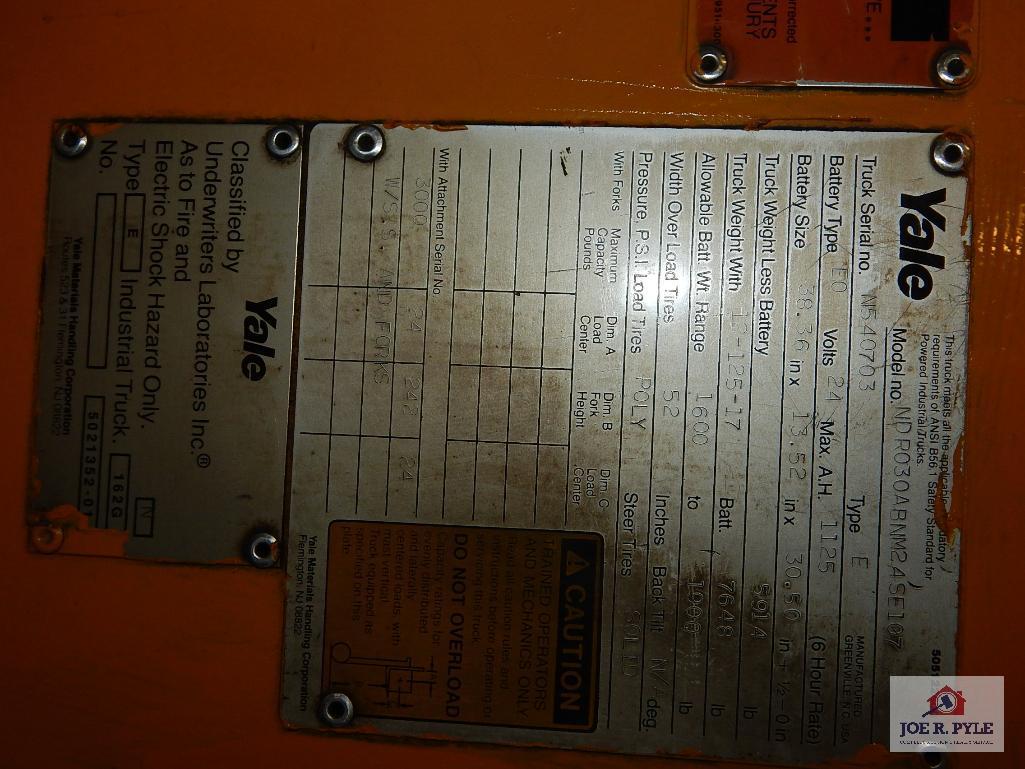 Yale
This truck meets all the applicable mandatory
requirements of ANSI B56.1 Safety Standard for
Powered Industrial Trucks.
Model no. NDR030ABNM24SE107
Truck Serial no. N540703 Type E
MANUFACTURED
GREENVILLE, N.C. USA
Battery Type EO Volts 24 Max. A.H. 1125 (6 Hour Rate)
Battery Size 38.36 in x 13.52 in x 30.50 in + ½ – 0 in
Truck Weight Less Battery 5914 lb
Truck Weight With 12-125-17 Batt. 7648 lb
Allowable Batt. Wt. Range 1600 to lb
Width Over Load Tires 52 Inches Back Tilt N/ deg.
Pressure, P.S.I. Load Tires POLY Steer Tires SOLID
With Forks
Maximum
Capacity
Pounds
Dim. A
Load
Center
Dim. B
Fork
Height
Dim. C
Load
Center
With Attachment Serial No.
3000 24 242 24
W/S.S. AND FORKS
CAUTION
TRAINED OPERATORS
AND MECHANICS ONLY
caution rules and
instructions before operating or
servicing this truck.
DO NOT OVERLOAD
Capacity ratings for
evenly distributed
centered loads with
mast vertical.
Truck equipped as
specified on this
plate.
Yale Materials Handling Corporation
Flemington, NJ 08822
Yale
Classified by
Underwriters Laboratories Inc.®
As to Fire and
Electric Shock Hazard Only.
Type E Industrial Truck. 162G N
No. 5021352-01
Yale Materials Handling Corporation
Routes 523 & 31 Flemington, NJ 08822
JOE R. PYLE